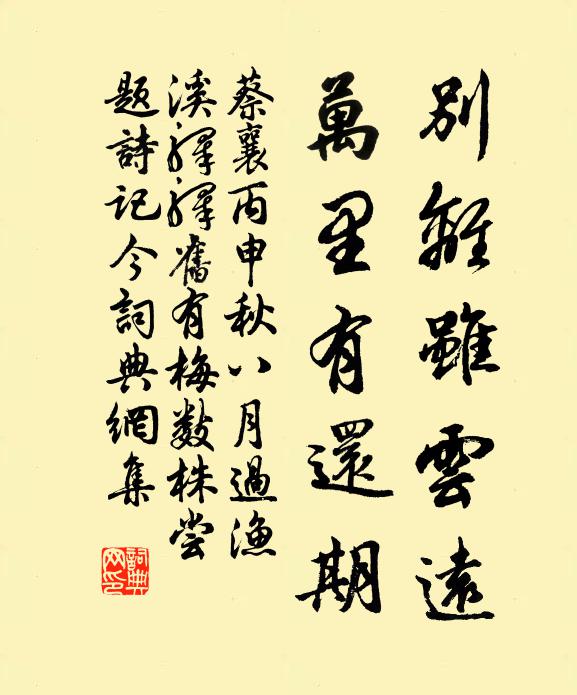 別離雖雲遠
萬里有還期
蔡襄丙申秋八月過漁
溪驛驛舊有梅數株嘗
題詩記今詞典網集
詞典网印